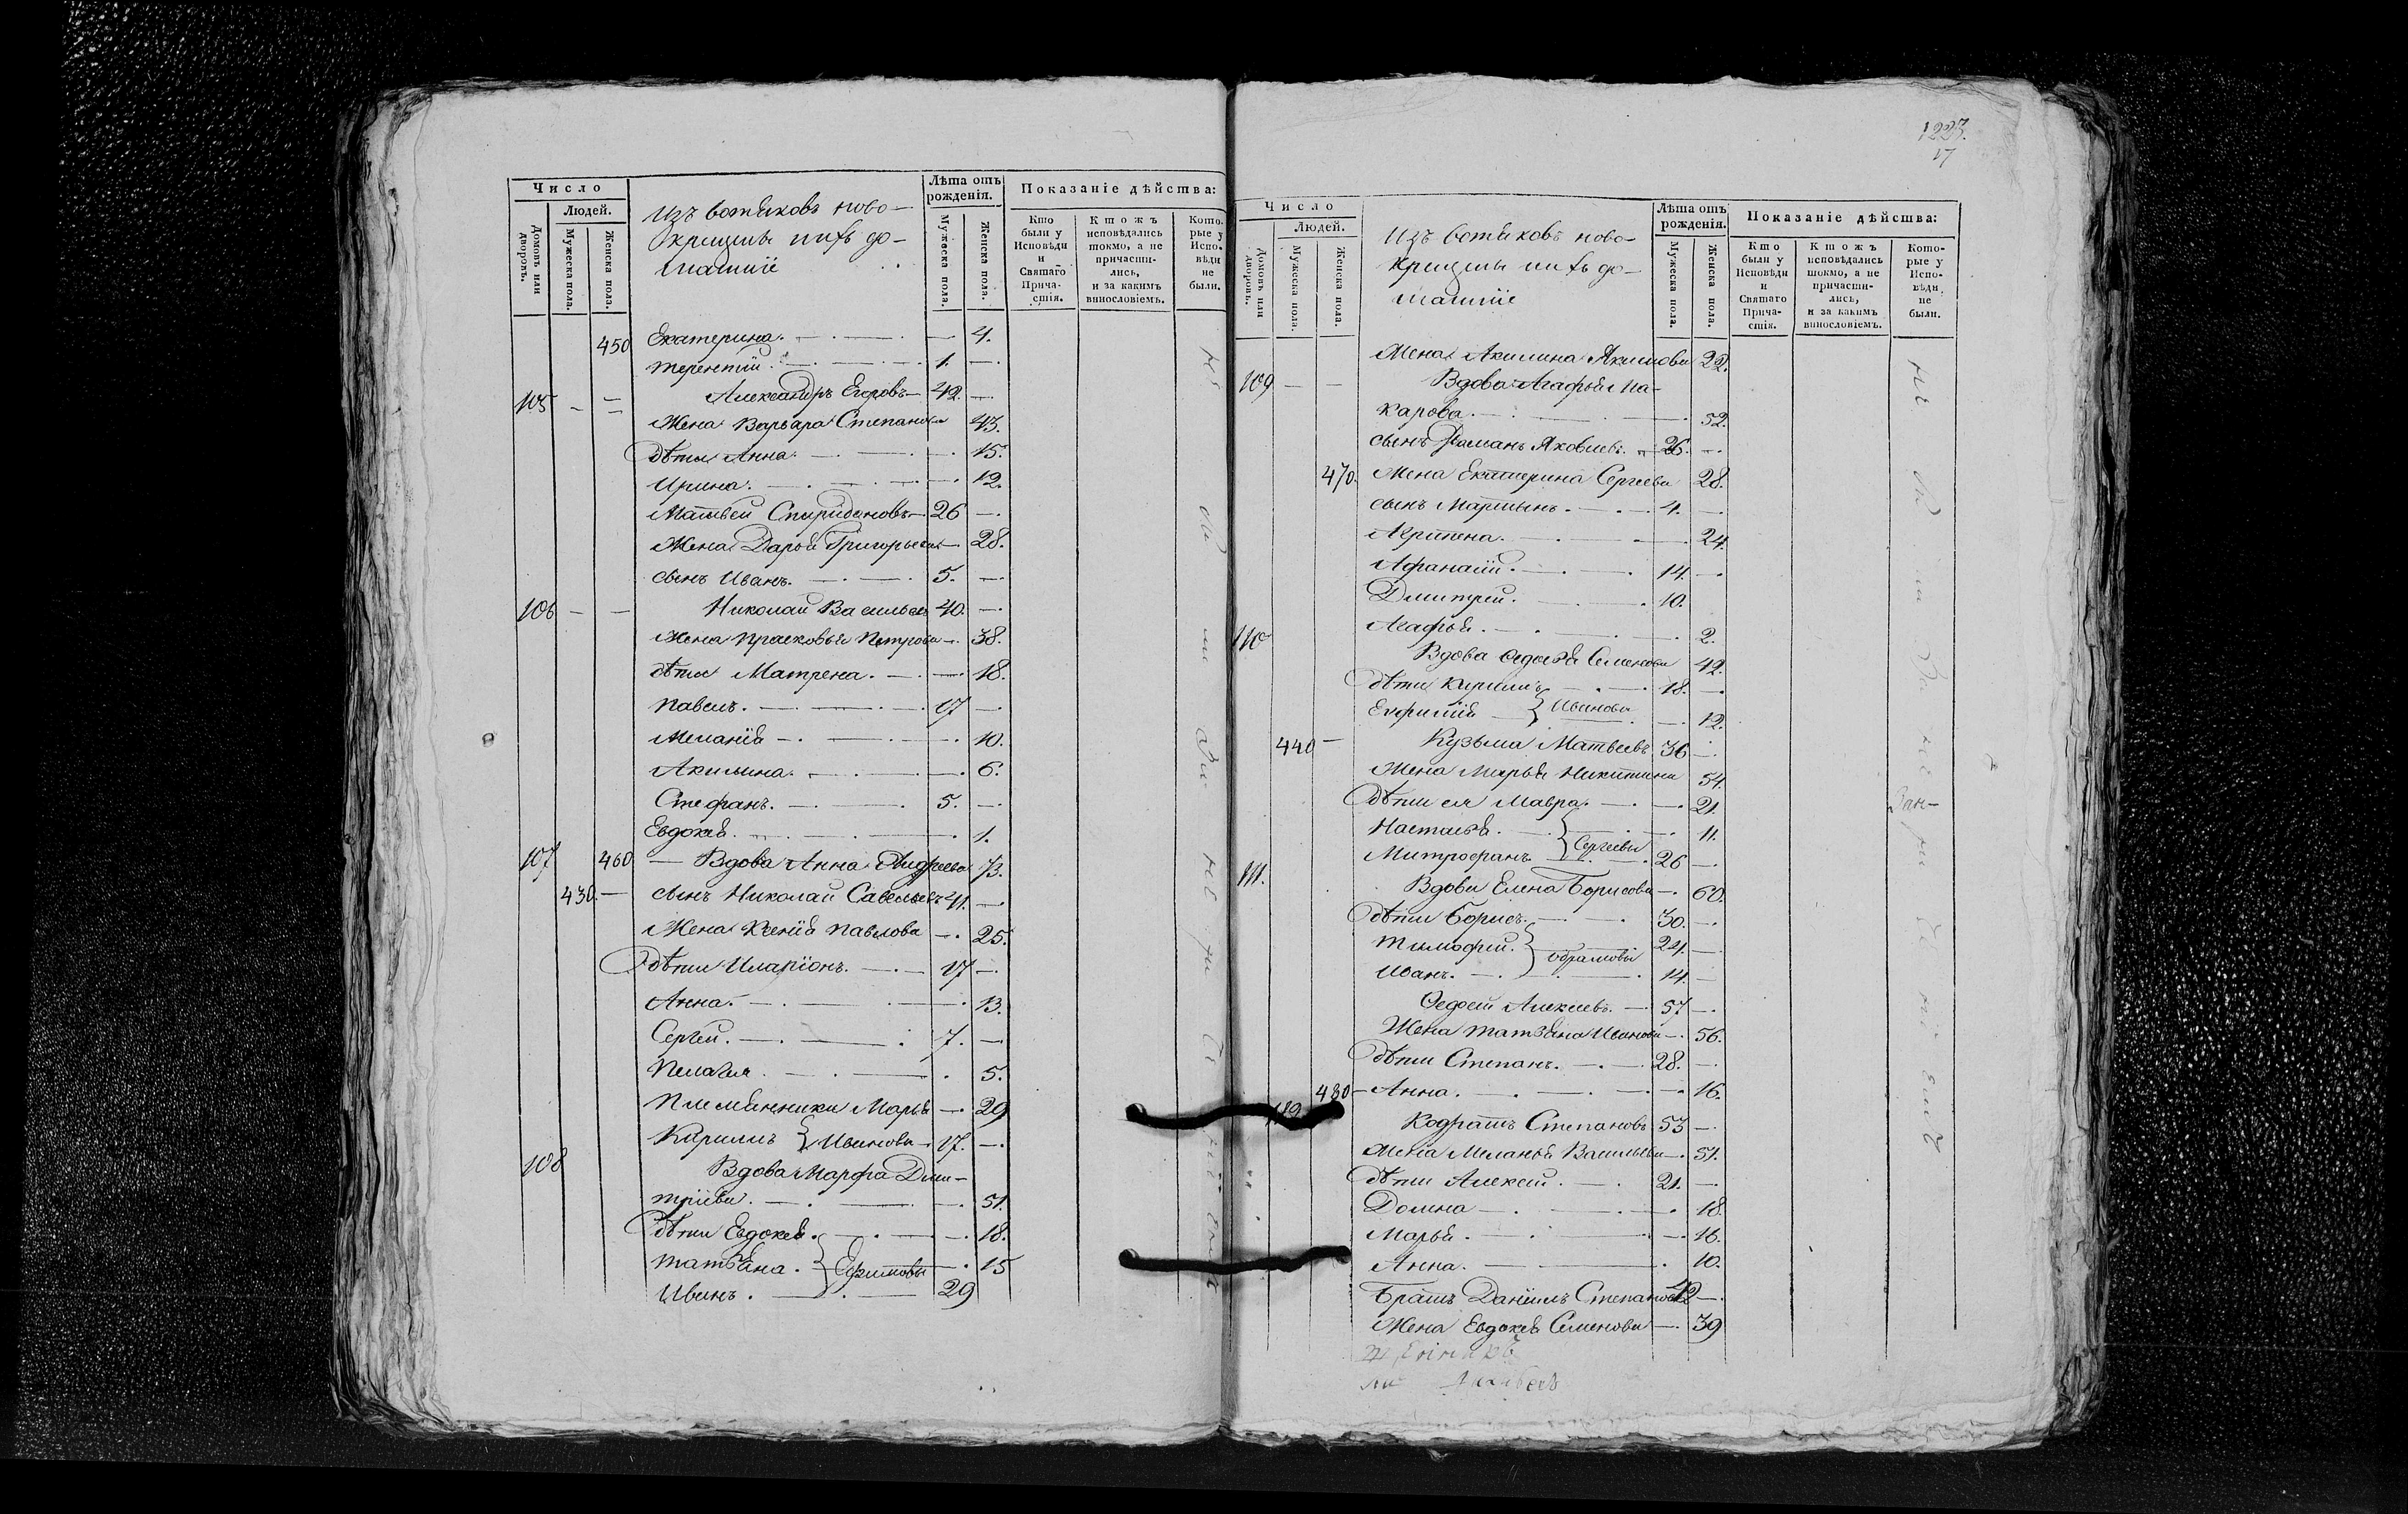 Число
Людей.
Домовъ или дворовъ.
Мужеска пола.
Женска пола.
Изъ вотяковъ ново-
крещены ихъ до-
машніе
Лѣта отъ рожденія.
Мужеска пола.
Женска пола.
Показаніе дѣйства:
Кто были у Исповѣди и Святаго Прича-стія.
Ктожъ исповѣдались токмо, а не причасти-лись, и за какимъ винословіемъ.
Кото-рые у Испо-вѣди не были.
450 Екатерина. — 4.
Терентій. 1. —
105 — — Александръ Егоровъ — 42. —
Жена Варвара Степанова 43.
дѣти Анна. — 15.
Ирина. — 12.
Матвей Спиридоновъ — 26 —
Жена Дарья Григорьева — 28.
сынъ Иванъ. 5. —
106 — — Николай Васильевъ 40. —
Жена Прасковья Петрова — 38.
дѣти Матрена. — 18.
Павелъ. 17 —
Меланія — 10.
Акилина. — 6.
Стефанъ. 5. —
Евдокея. — 1.
107 460 — Вдова Анна Андреева 73.
430. — сынъ Николай Савельевъ 41. —
Жена Ксенія Павлова — 25.
дѣти Иларіонъ. 17 —
Анна. — 13.
Сергей. 7. —
Пелагея. 5.
Племянники Марья — 29
Кирилъ } Иванова — 17. —
108 Вдова Марфа Дми-
тріева. — 51.
дѣти Евдокея. — 18.
Татьяна. } Ефимовы — 15
Иванъ. 29
1223.
17
Число
Людей.
Домовъ или дворовъ.
Мужеска пола.
Женска пола.
Изъ вотяковъ ново-
крещены ихъ до-
машніе
Лѣта отъ рожденія.
Мужеска пола.
Женска пола.
Показаніе дѣйства:
Кто были у Исповѣди и Святаго Прича-стія.
Ктожъ исповѣдались токмо, а не причасти-лись, и за какимъ винословіемъ.
Кото-рые у Испо-вѣди не были.
Жена Акилина Якимова 22.
109 — — Вдова Агафья Ма-
карова. — 52.
сынъ Романъ Яковлевъ. 26. —
470. Жена Екатерина Сергеева 28.
сынъ Мартынъ. 4. —
Агрипена. — 24.
Афанасій. 14. —
Дмитрей. 10.
Агафья. 2.
110 Вдова Федосья Семенова 42.
дѣти Кирилъ 18. —
Евфимія } Иванова — 12.
440 — Кузьма Матвеевъ 36 —
Жена Марья Никитина 54.
дѣти ея Мавра. — 21.
Настасья. — 11.
Митрофанъ } Сергеевы 26 —
111. Вдова Елена Борисова — 60.
дѣти Борисъ. 30. —
Тимофей. 24. —
Иванъ. 14. —
Федосей Алексеевъ. — 57 —
Жена Татьяна Иванова — 56.
дѣти Степанъ. 28. —
480 — Анна. — 16.
112 Кодратъ Степановъ 53 —
Жена Меланья Васильева — 51.
дѣти Алексей. 21. —
Домна — 18.
Марья. — 16.
Анна. 10.
Братъ Даніилъ Степановъ 42 —
Жена Евдокея Семенова — 39